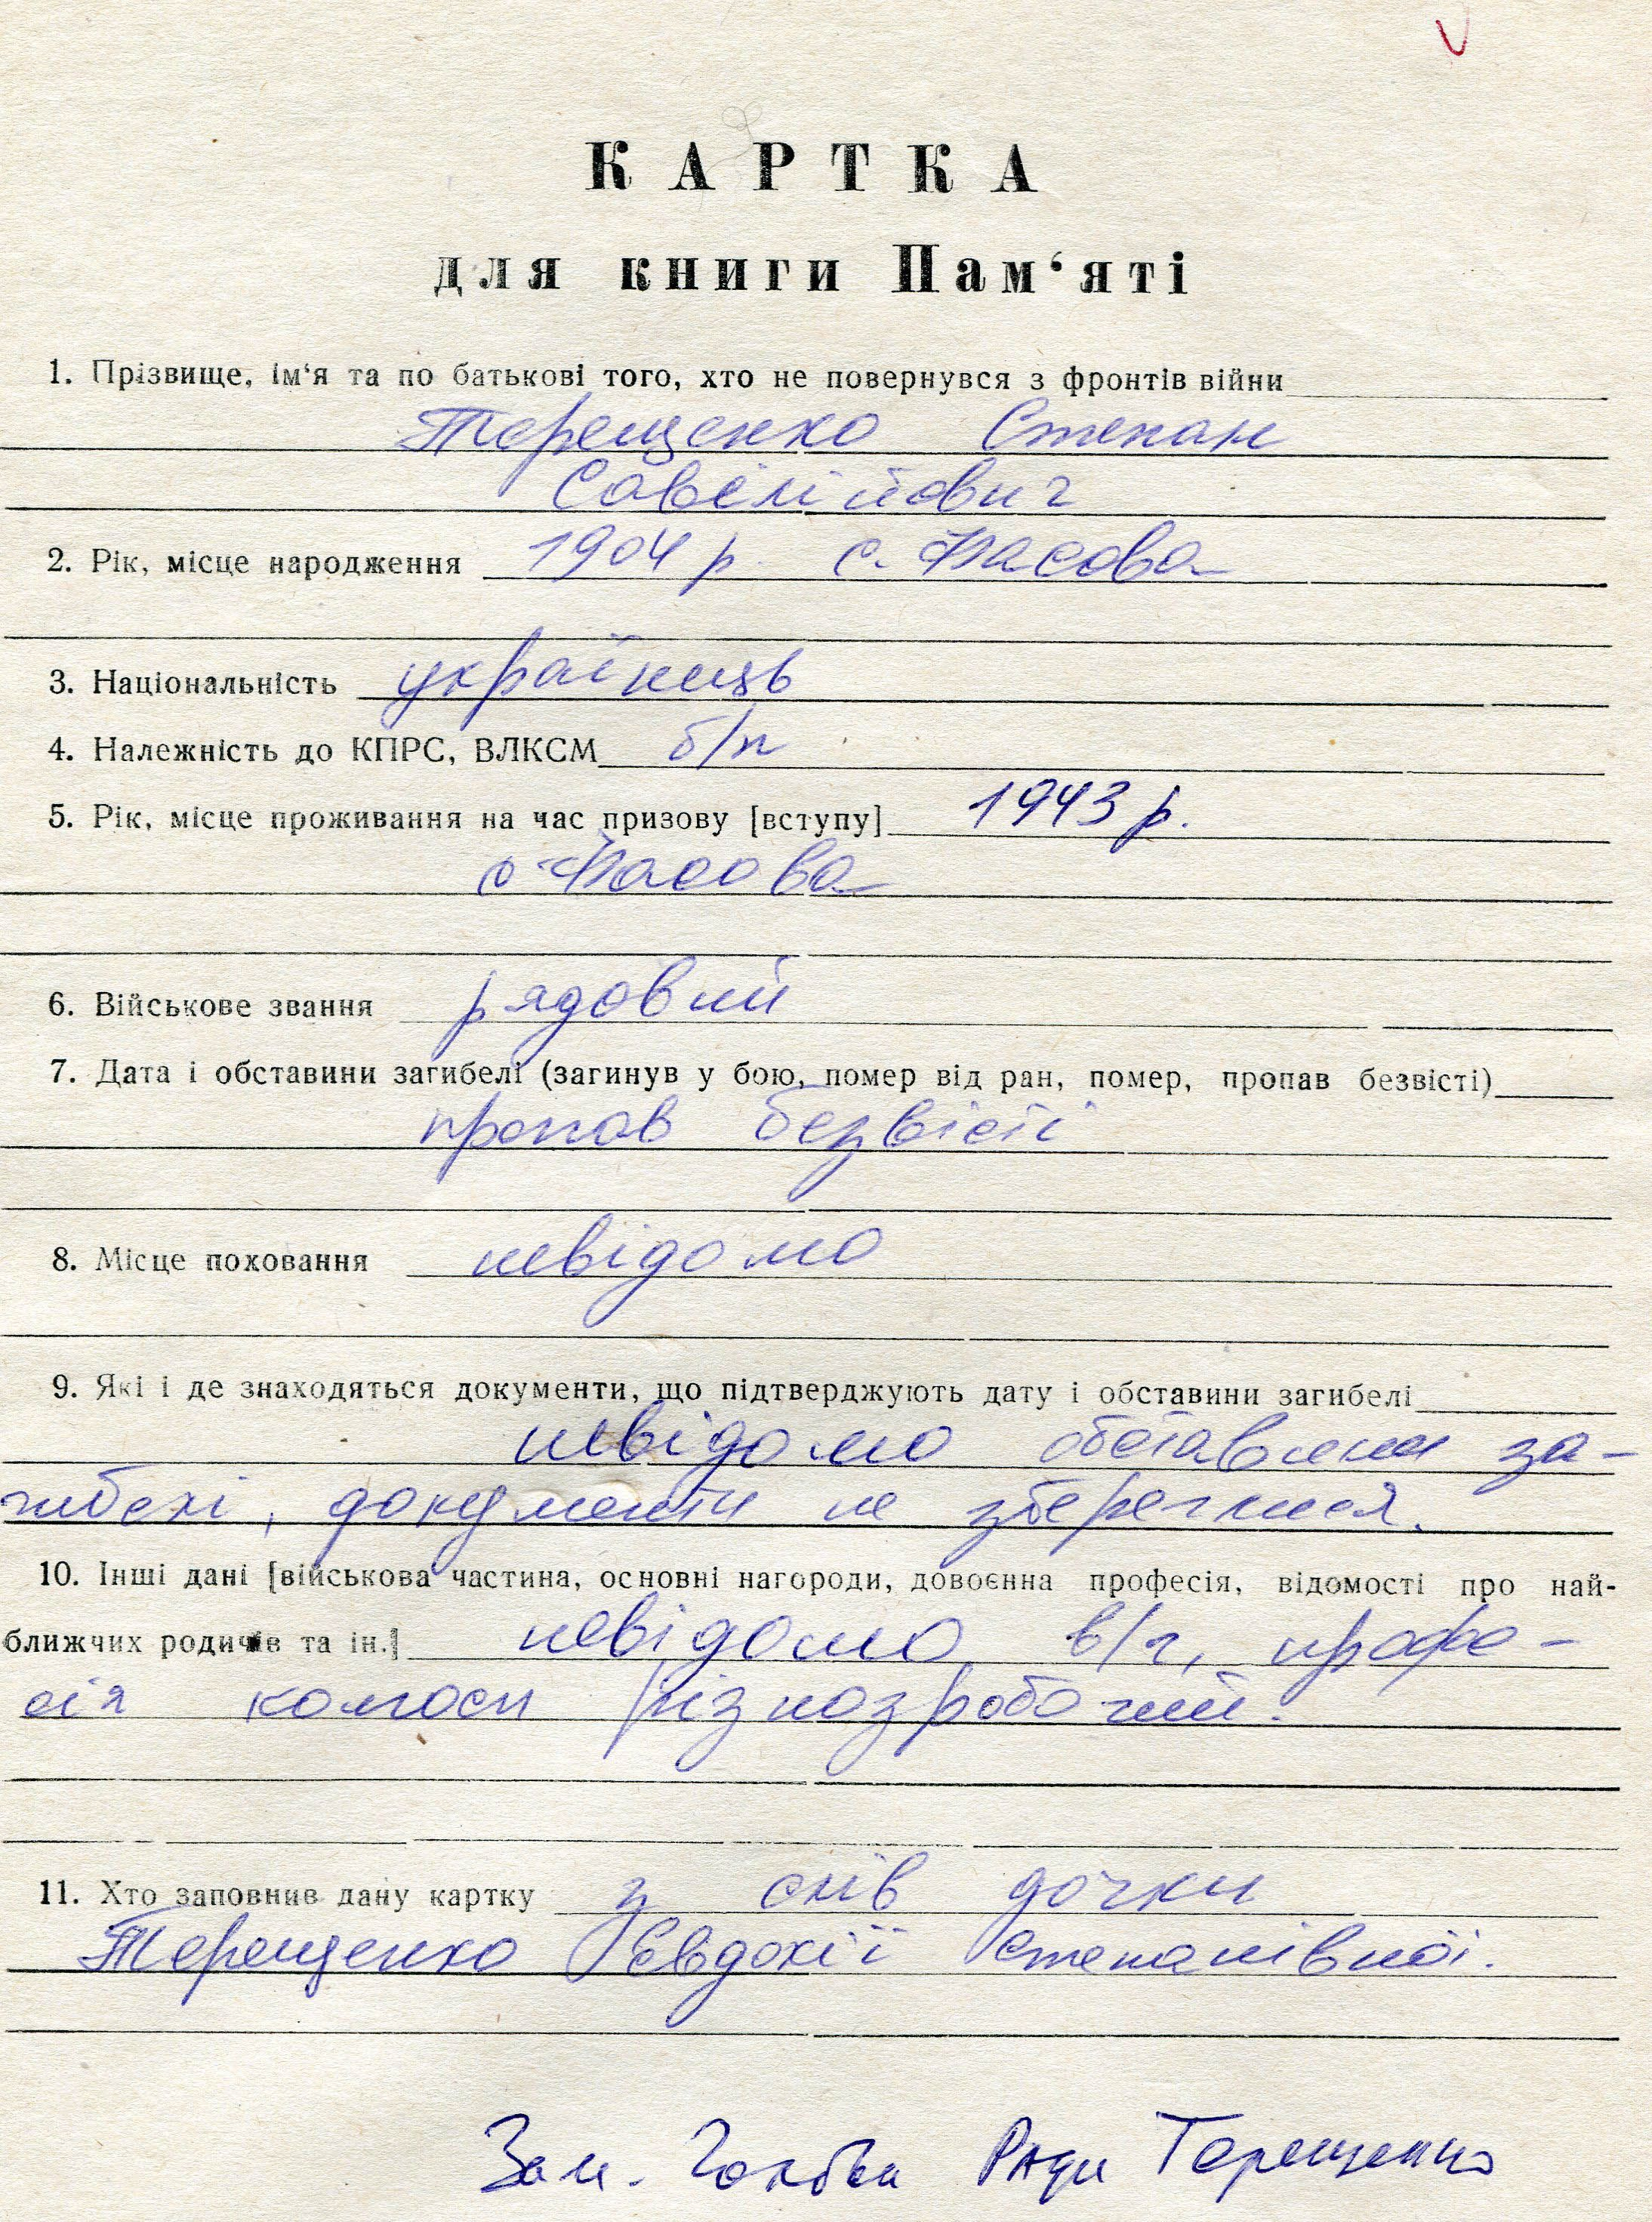 КАРТКА
для книги Пам‘яті
1. Прізвище, ім‘я та по батькові того, хто не повернувся з фронтів війни
Терещенко Степан
Савелійович
2. Рік, місце народження 1904 р. с. Фасова
3. Національність українець
4. Належність до КПРС, ВЛКСМ б/п
5. Рік, місце проживання на час призову [вступу] 1943 р.
с. Фасова
6. Військове звання рядовий
7. Дата і обставини загибелі (загинув у бою, помер від ран, помер, пропав безвісті)
пропав безвісті
8. Місце поховання невідомо
9. Які і де знаходяться документи, що підтверджують дату і обставини загибелі
невідомо обставини за-
гибелі, документи не збереглися.
10. Інші дані [військова частина, основні нагороди, довоєнна професія, відомості про най-
ближчих родичів та ін.] невідомо в/ч, профе-
сія колгосп різнозробочий.
11. Хто заповнив дану картку з слів дочки
Терещенко Євдокії Степанівної.
Зам. Голови Ради Терещенко